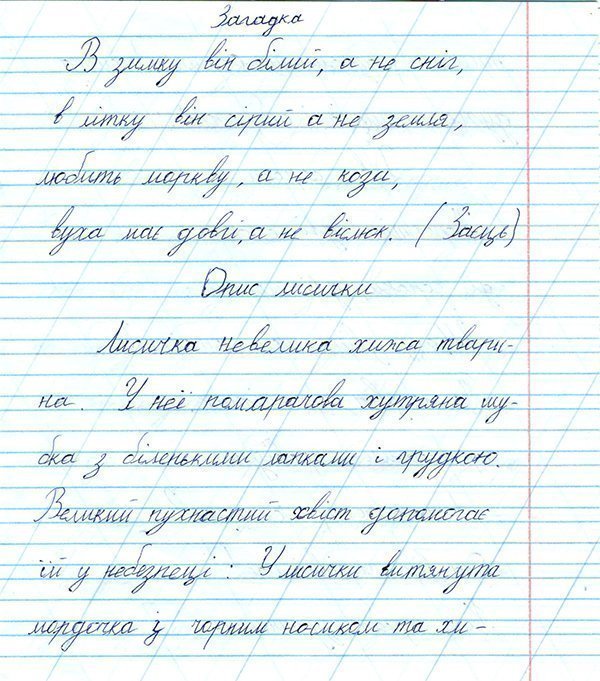 Загадка
В зимку він білий, а не сніг,
в літку він сірий а не земля,
любить моркву, а не коза,
вуха має довгі, а не віслюк. (Заєць)
Опис лисички
Лисичка невелика хижа твари-
на. У неї помарачова хутряна шу-
бка з біленькими лапками і грудкою.
Великий пухнастий хвіст допомогає
їй у небезпеці: У лисички витянута
мордочка із чорним носиком та хи-